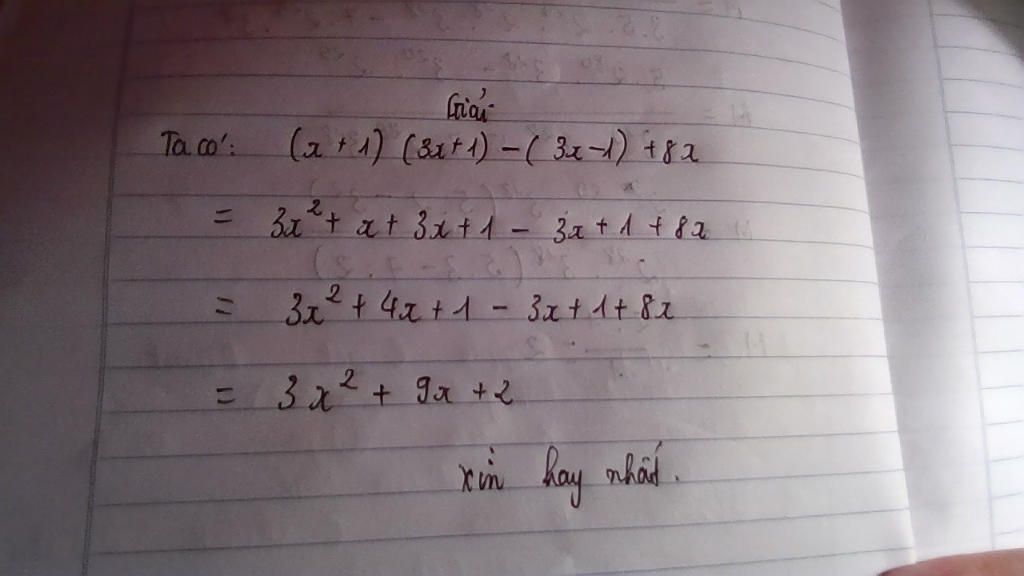 Giải
Ta có: (x + 1) (3x+1) - ( 3x-1) + 8x
= 3x² + x + 3x + 1 - 3x + 1 + 8x
= 3x² + 4x + 1 - 3x + 1 + 8x
= 3x² + 9x + 2
xin hay nhất.